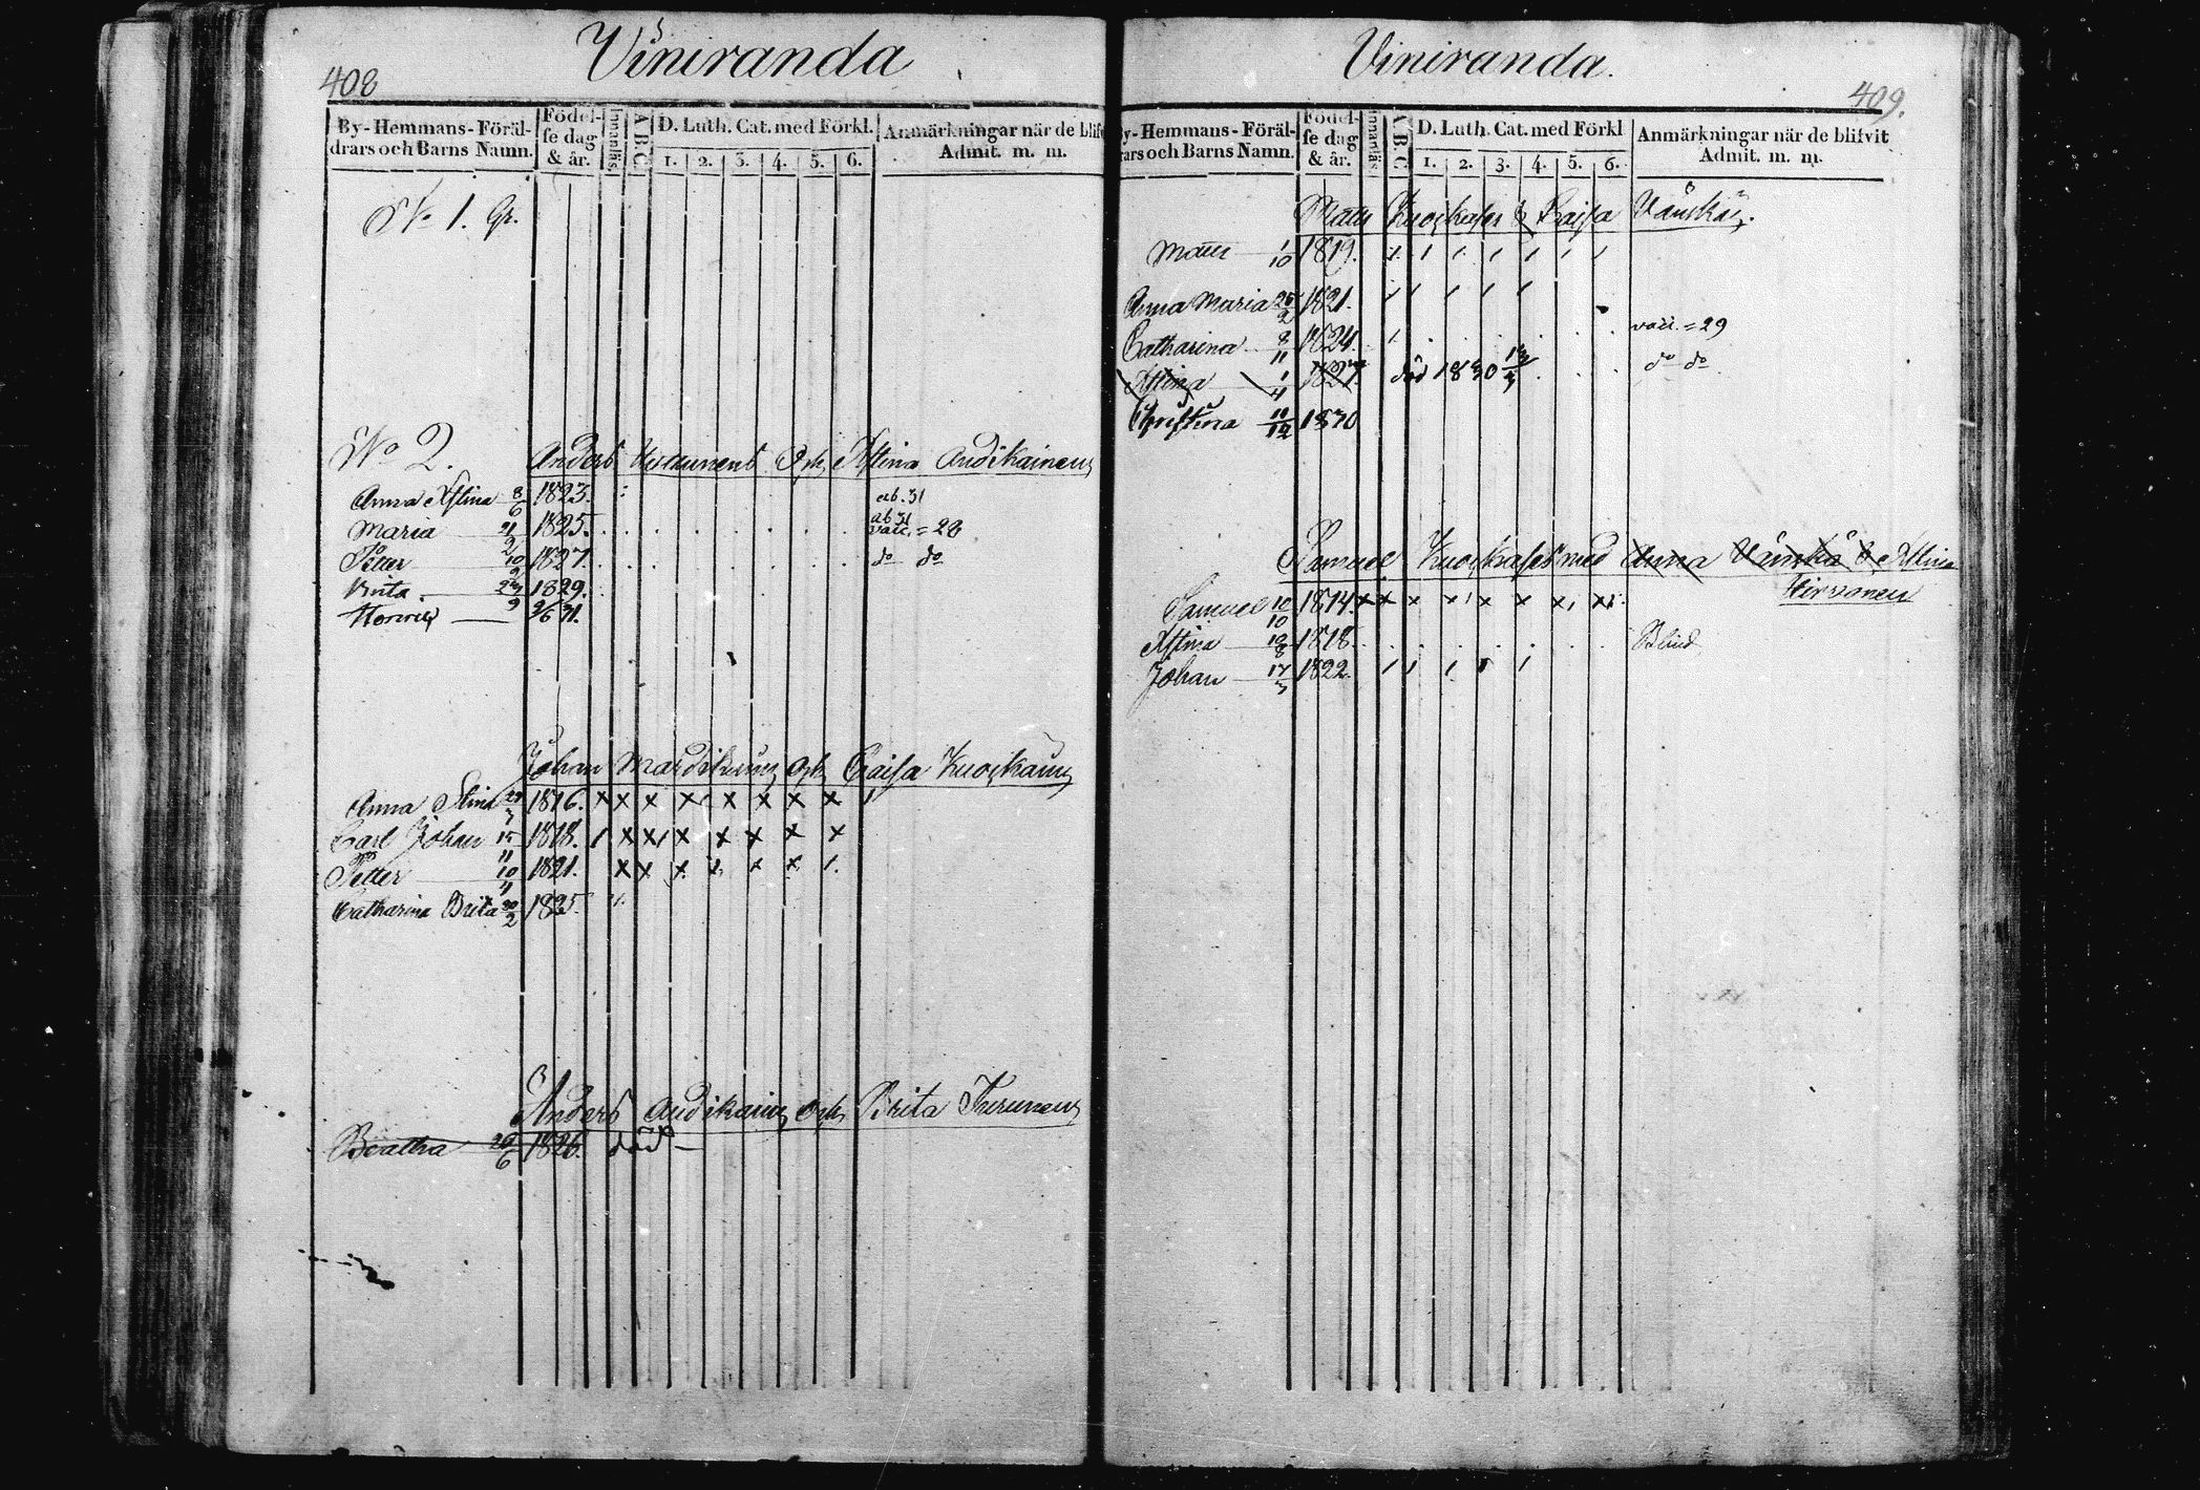 408
Viniranda
By-Hemmans-Föräl-
drars och Barns Namn.
Födel-
se dag
& år.
Innanläs.
A B C
D. Luth. Cat. med Förkl.
1. 2. 3. 4. 5. 6.
Anmärkningar när de blifv
Admit. m. m.
No 1. Gr.
No 2. Anders Och Stina Audikainen
Anna Stina 8/6 1823. ab. 31
Maria 21/2 1825. ab 31 vacc. = 28
Petter 10/2 1827. do do
Brita 24/9 1829.
Henric 9/6 31.
Johan Mardikainen och Caisa Kuoskain
Anna Stina 29/3 1816. x x x x x x x x
Carl Johan 15/11 1818. 1 x x x x x x x
Petter 10/4 1821. x x x 1 x x 1.
Catharina Brita 20/2 1825.
Anders Audikain och Brita Turunen
Beatha 20/6 1826. död
Viniranda.
409.
y-Hemmans-Föräl-
rars och Barns Namn.
Födel-
se dag
& år.
Innanläs
A B C
D. Luth. Cat. med Förkl
1. 2. 3. 4. 5. 6.
Anmärkningar när de blifvit
Admit. m. m.
Matts & Caisa Vänskä.
Matts 1/10 1819. 1 1 1 1 1 1 1
Anna Maria 25/2 1821. 1 1 1 1 1
Catharina 8/11 1824. 1 vacc. = 29
Stina 1/4 1827. död 1830 do do
Christina 11/12 1830
Samuel med Anna Vänskä & Stina
Hirvonen
Samuel 10/10 1814. x x x x x x x x
Stina 19/8 1818. Blind
Johan 17/3 1822. 1 1 1 1 1